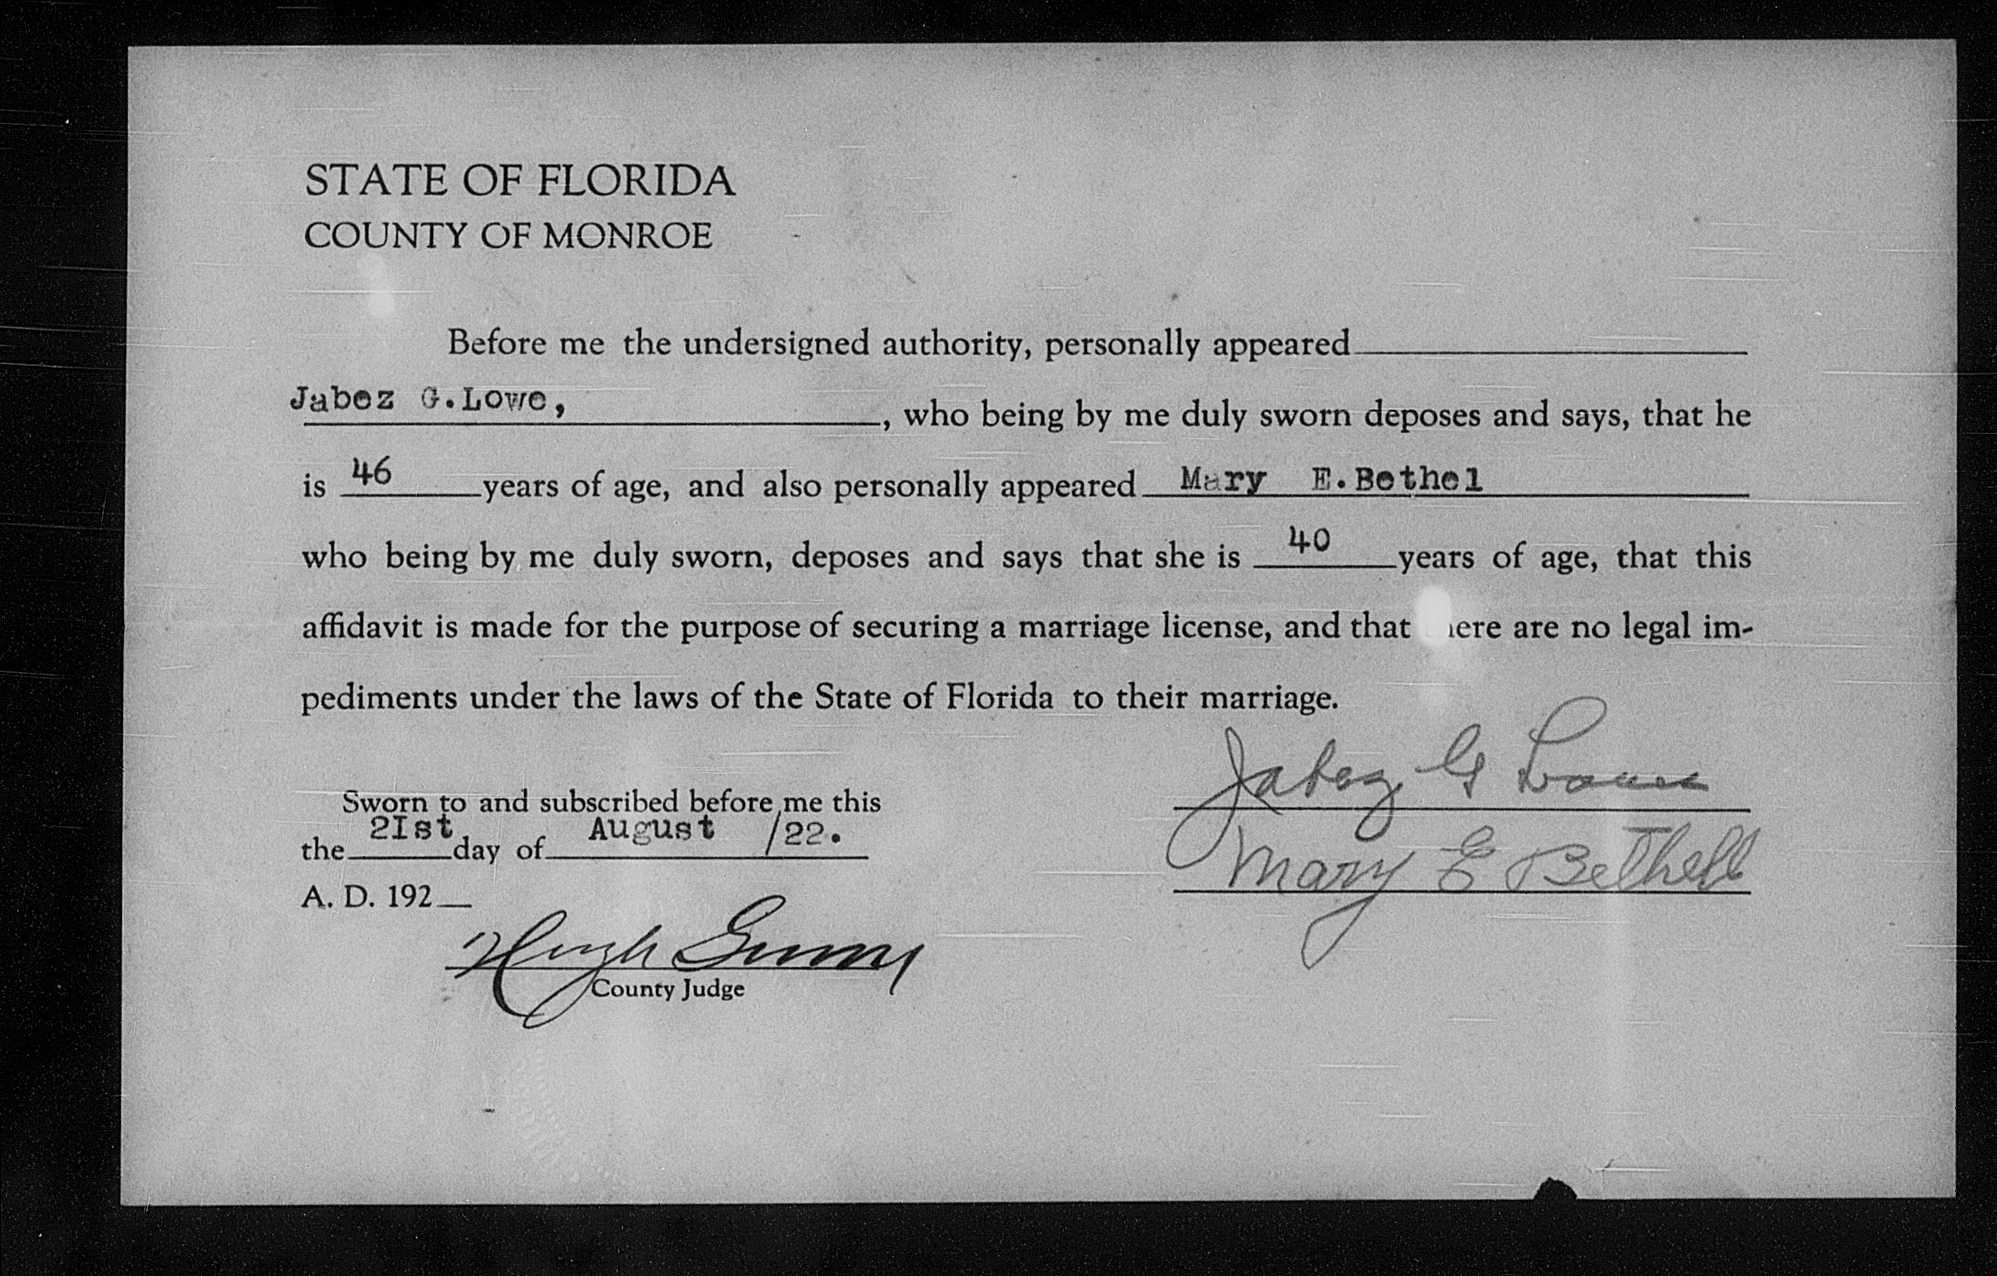 STATE OF FLORIDA
COUNTY OF MONROE
Before me the undersigned authority, personally appeared
Jabez G.Lowe, , who being by me duly sworn deposes and says, that he
is 46 years of age, and also personally appeared Mary E.Bethel
who being by me duly sworn, deposes and says that she is 40 years of age, that this
affidavit is made for the purpose of securing a marriage license, and that here are no legal im-
pediments under the laws of the State of Florida to their marriage.
Jabez G Lowe
Sworn to and subscribed before me this
the 2Ist day of August /22.
Mary E Bethell
A. D. 192
Hugh Gunn
County Judge